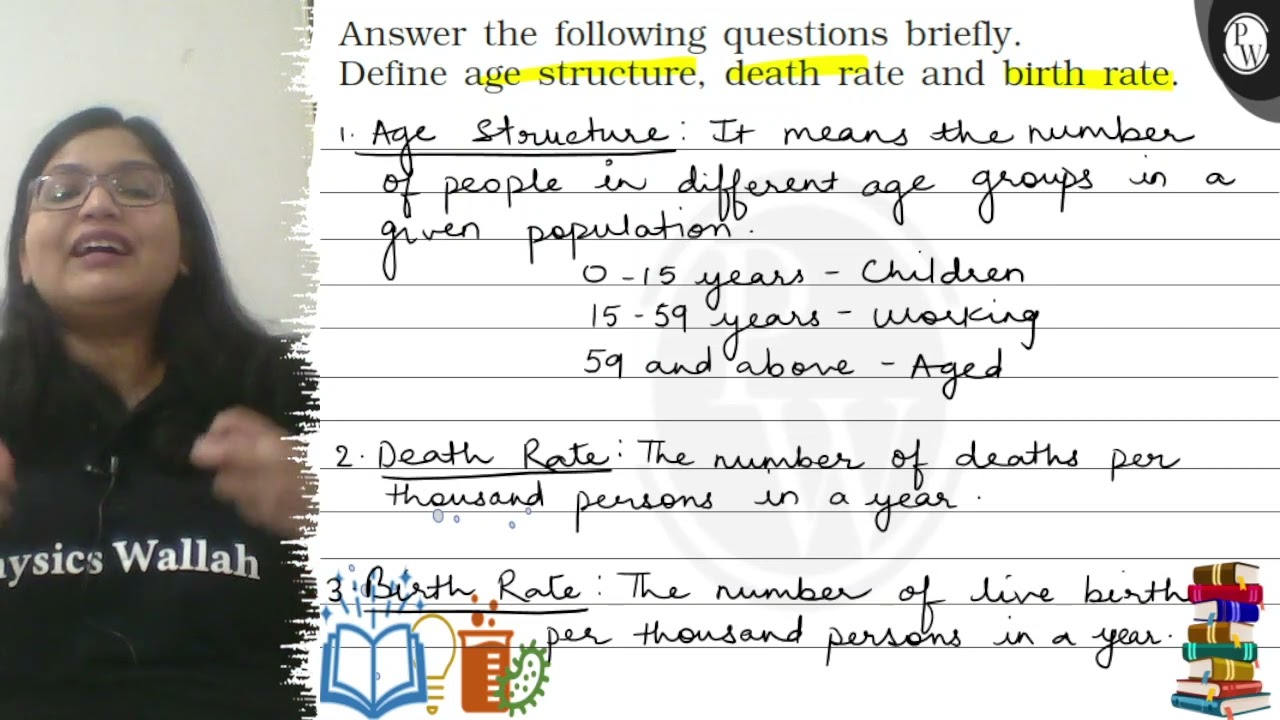 Answer the following questions briefly.
Define age structure, death rate and birth rate.
PW
1. Age Structure: It means the number
of people in different age groups in a
given population.
0-15 years - Children
15-59 years - Working
59 and above - Aged
2. Death Rate: The number of deaths per
thousand persons in a year.
3. Birth Rate: The number of live birth
per thousand persons in a year.
PW
hysics Wallah